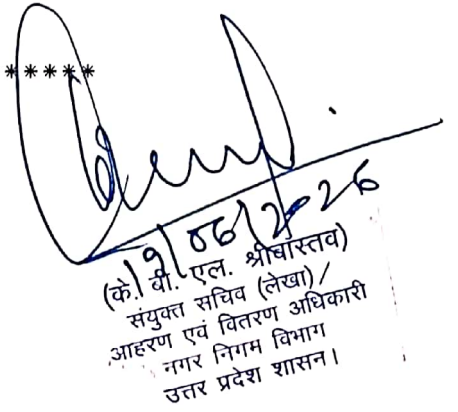 *****
19/06/2026
(के. बी. एल. श्रीवास्तव)
संयुक्त सचिव (लेखा)/
आहरण एवं वितरण अधिकारी
नगर निगम विभाग
उत्तर प्रदेश शासन।